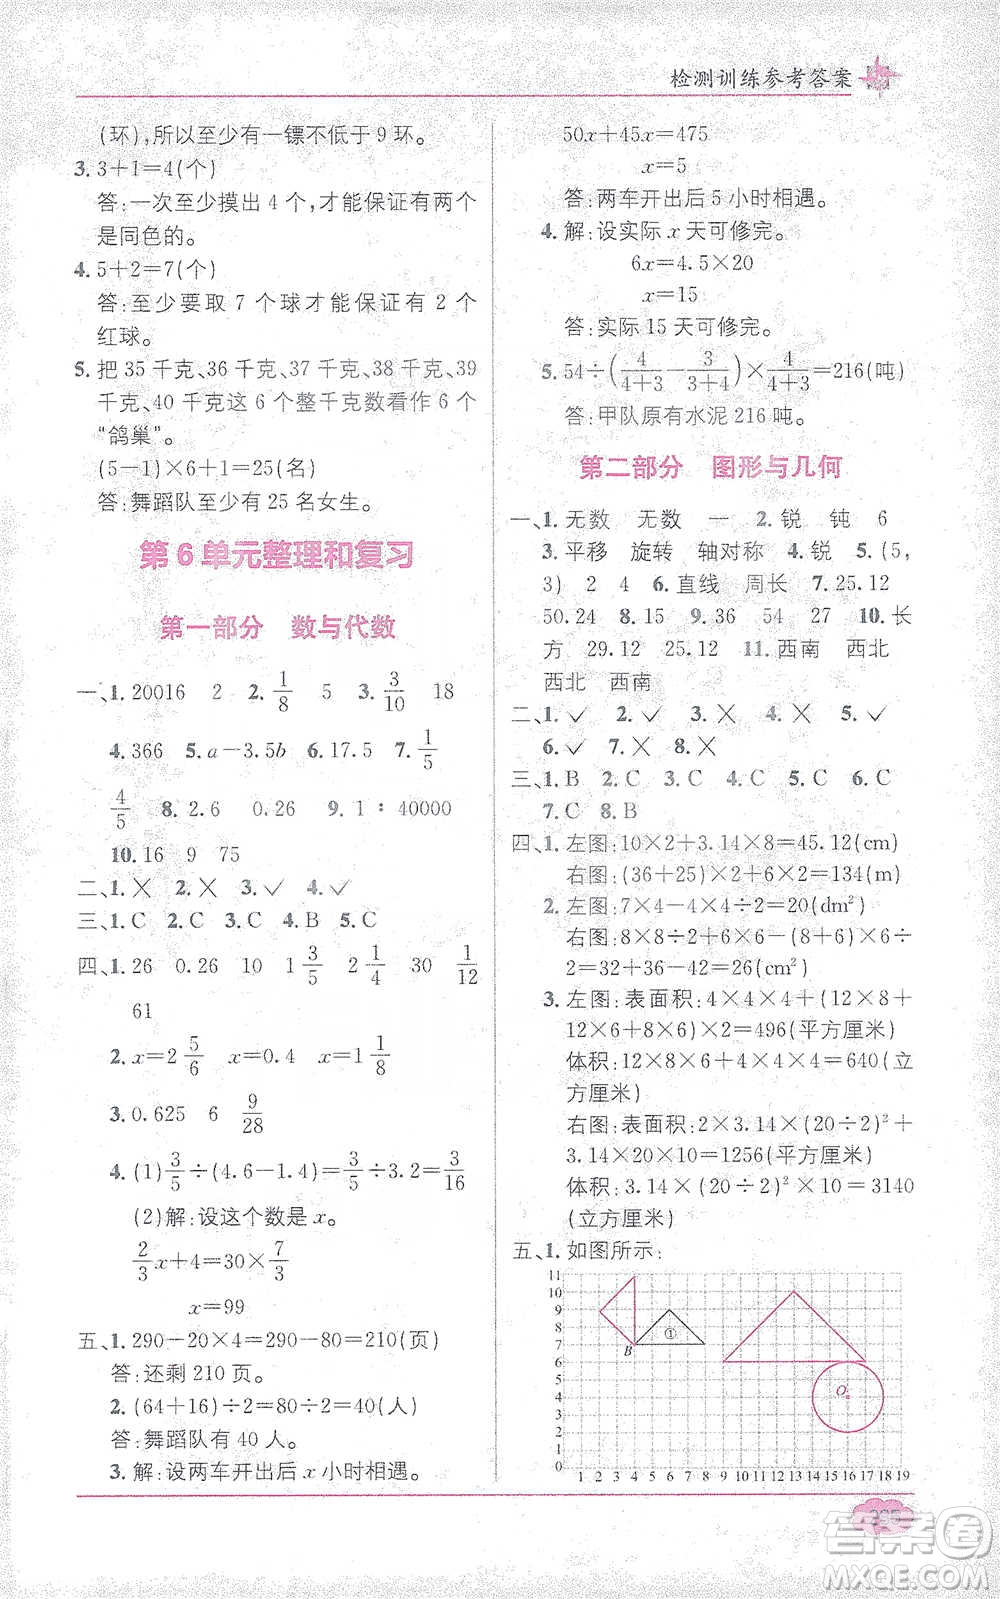 检测训练参考答案
(环),所以至少有一镖不低于 9 环。
3. 3+1=4(个)
答:一次至少摸出 4 个,才能保证有两个
是同色的。
4. 5+2=7(个)
答:至少要取 7 个球才能保证有 2 个
红球。
5. 把 35 千克、36 千克、37 千克、38 千克、39
千克、40 千克这 6 个整千克数看作 6 个
“鸽巢”。
(5-1)×6+1=25(名)
答:舞蹈队至少有 25 名女生。
第 6 单元整理和复习
第一部分 数与代数
一、1. 20016 2 2. 1/8 5 3. 3/10 18
4. 366 5. a-3.5b 6. 17.5 7. 1/5
4/5 8. 2.6 0.26 9. 1∶40000
10. 16 9 75
二、1. ✕ 2. ✕ 3. ✓ 4. ✓
三、1. C 2. C 3. C 4. B 5. C
四、1. 26 0.26 10 1 3/5 2 1/4 30 1/12
61
2. x=2 5/6 x=0.4 x=1 1/8
3. 0.625 6 9/28
4. (1) 3/5÷(4.6-1.4)=3/5÷3.2=3/16
(2)解:设这个数是 x。
2/3x+4=30×7/3
x=99
五、1. 290-20×4=290-80=210(页)
答:还剩 210 页。
2. (64+16)÷2=80÷2=40(人)
答:舞蹈队有 40 人。
3. 解:设两车开出后 x 小时相遇。
50x+45x=475
x=5
答:两车开出后 5 小时相遇。
4. 解:设实际 x 天可修完。
6x=4.5×20
x=15
答:实际 15 天可修完。
5. 54÷(4/(4+3)-3/(3+4))×4/(4+3)=216(吨)
答:甲队原有水泥 216 吨。
第二部分 图形与几何
一、1. 无数 无数 一 2. 锐 钝 6
3. 平移 旋转 轴对称 4. 锐 5. (5,
3) 2 4 6. 直线 周长 7. 25.12
50.24 8. 15 9. 54 27 10. 长
方 29.12 25.12 11. 西南 西北
西北 西南
二、1. ✓ 2. ✓ 3. ✕ 4. ✕ 5. ✓
6. ✓ 7. ✕ 8. ✕
三、1. B 2. C 3. C 4. C 5. B 6. C
7. C 8. B
四、1. 左图:10×2+3.14×8=45.12(cm)
右图:(36+25)×2+6×2=134(m)
2. 左图:7×4-4×4÷2=20(dm²)
右图:8×8÷2+6×6-(8+6)×6÷
2=32+36-42=26(cm²)
3. 左图:表面积:4×4×4+(12×8+
12×6+8×6)×2=496(平方厘米)
体积:12×8×6+4×4×4=640(立
方厘米)
右图:表面积:2×3.14×(20÷2)²+
3.14×20×10=1256(平方厘米)
体积:3.14×(20÷2)²×10=3140
(立方厘米)
五、1. 如图所示:
11
10
9
8
7
6
5
4
3
2
1
0
B
①
O
1 2 3 4 5 6 7 8 9 10 11 12 13 14 15 16 17 18 19
答案圈
MXQE.COM